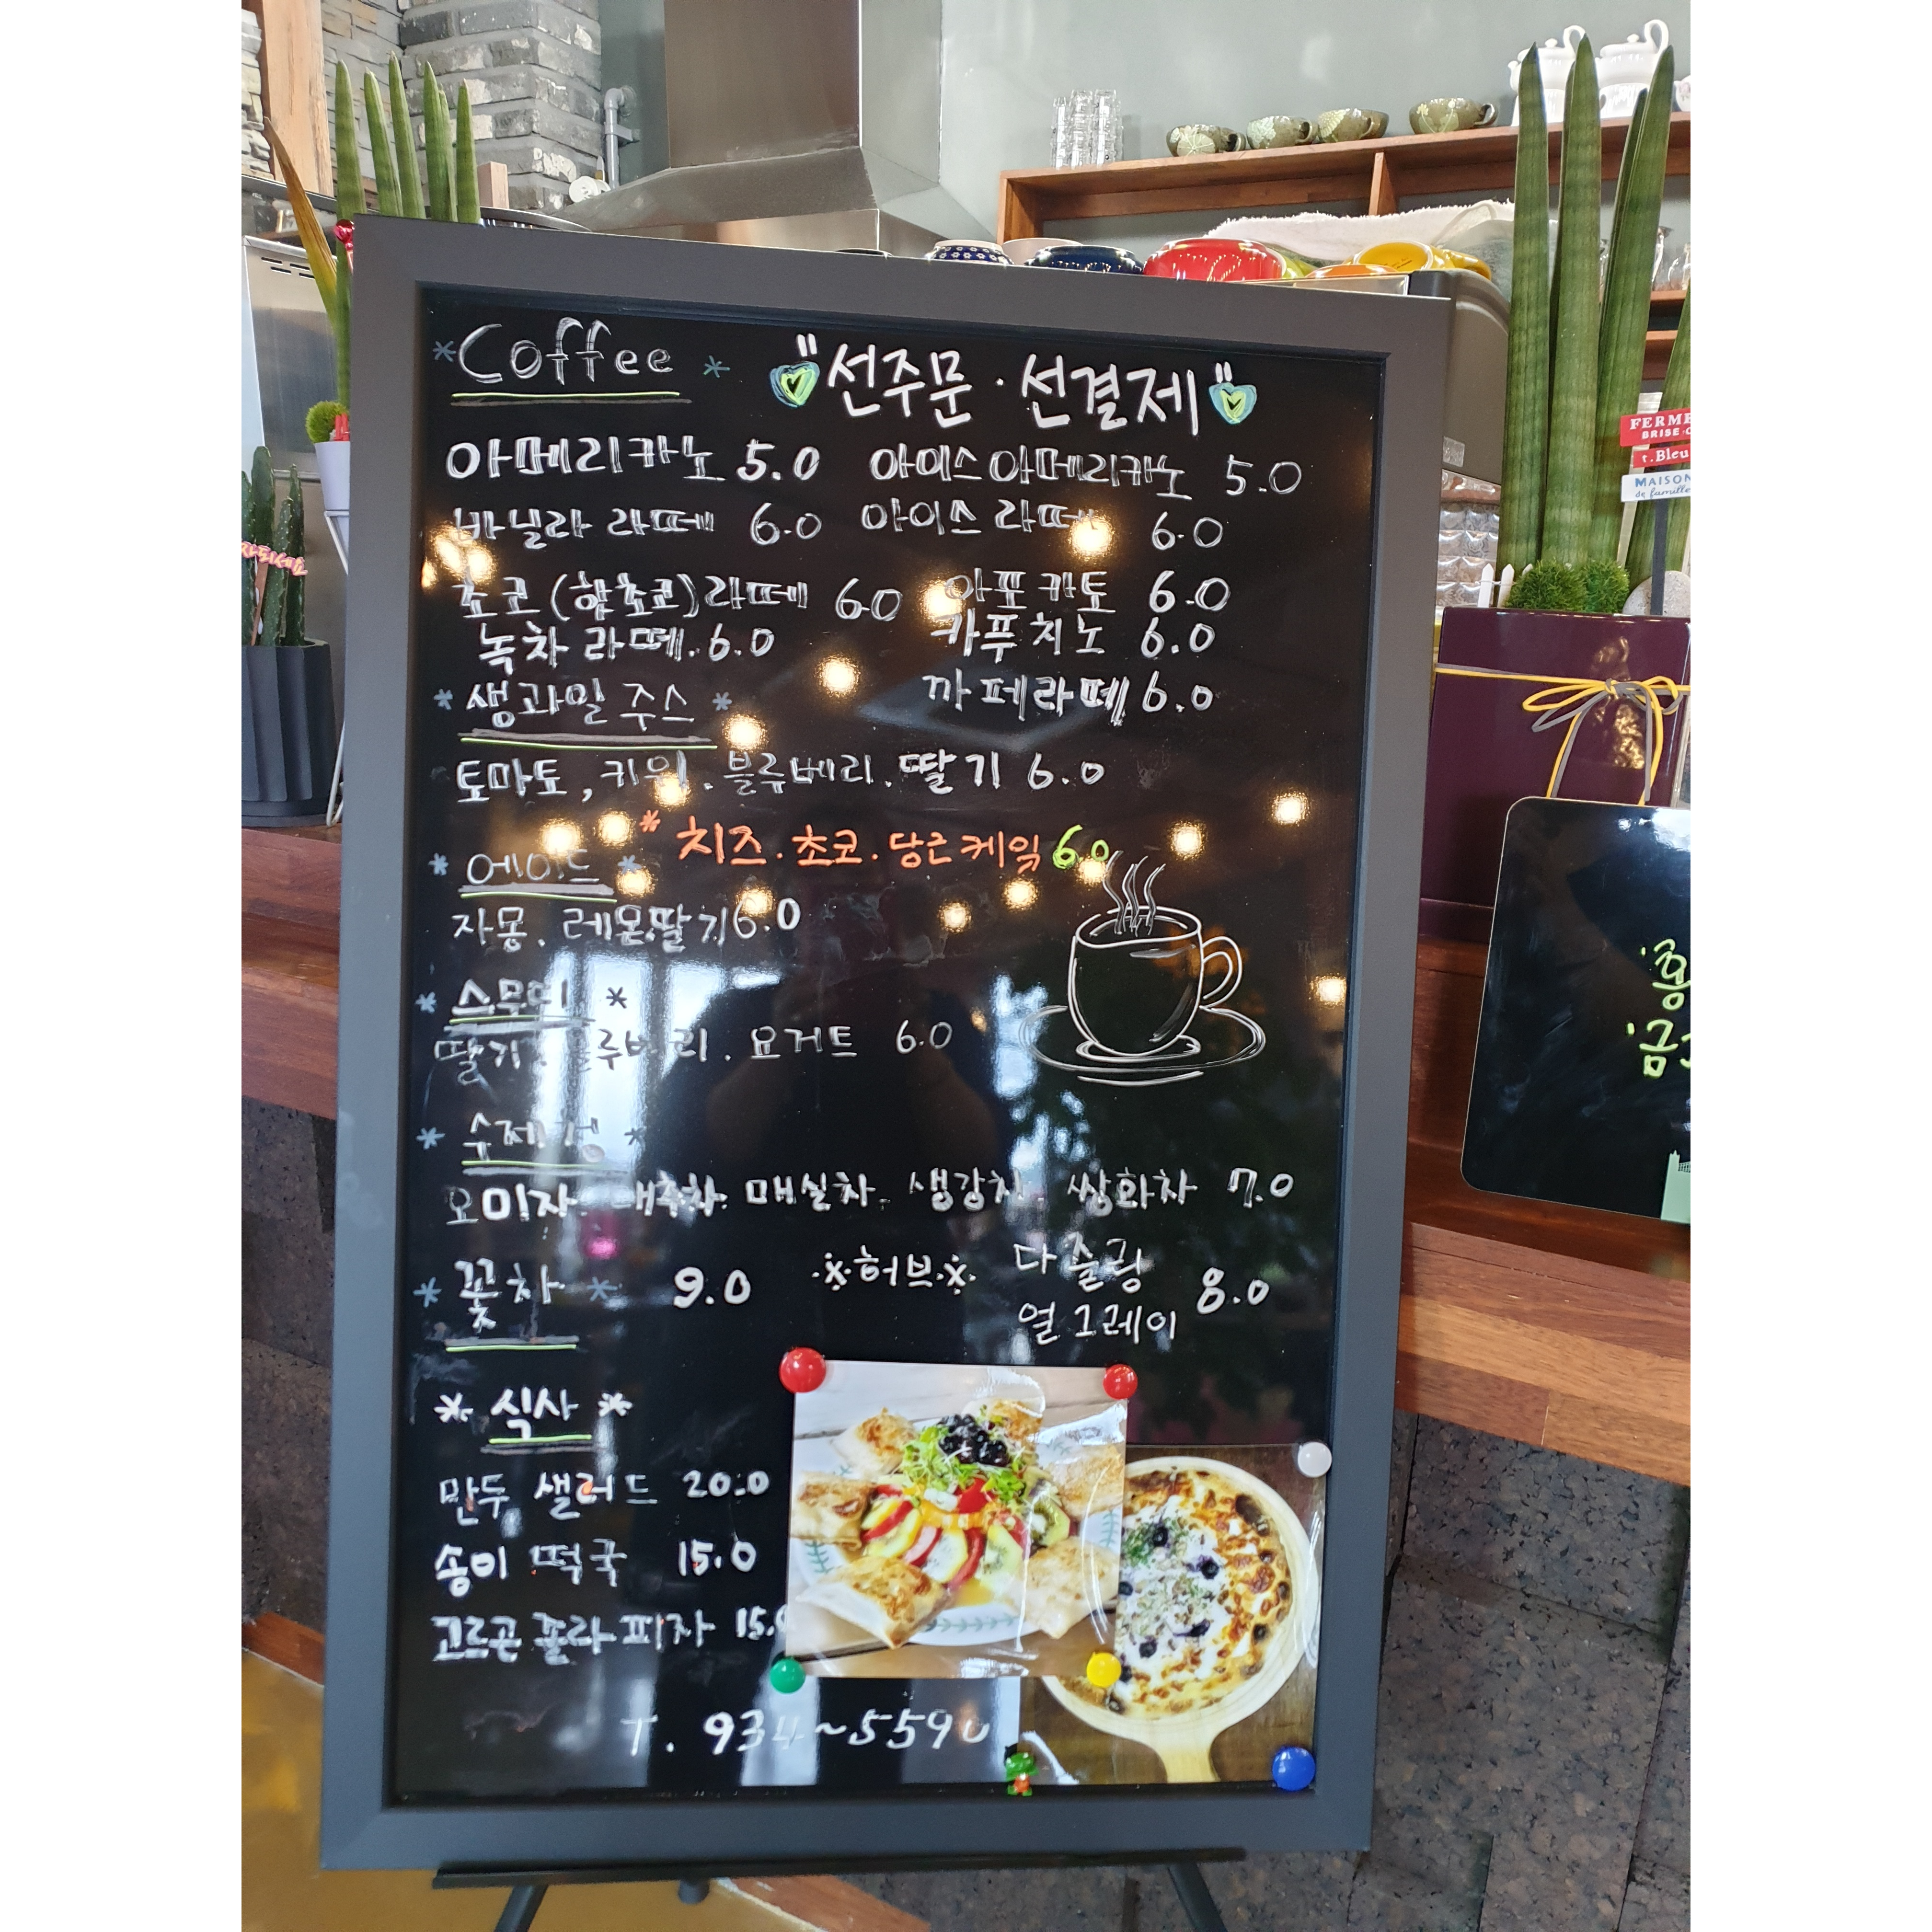 *Coffee*
"선주문 · 선결제"
아메리카노 5.0 아이스 아메리카노 5.0
바닐라 라떼 6.0 아이스 라떼 6.0
초코(핫초코)라떼 6.0 아포카토 6.0
녹차 라떼. 6.0 카푸치노 6.0
*생과일 주스* 까페라떼 6.0
토마토, 키위. 블루베리. 딸기 6.0
* 치즈. 초코. 당근케잌 6.0
*에이드*
자몽. 레몬.딸기 6.0
*스무디*
딸기. 블루베리. 요거트 6.0
*수제청*
오미자. 대추차. 매실차. 생강차. 쌍화차 7.0
*꽃차* 9.0 ※허브※ 다즐링 8.0
얼그레이
*식사*
만두 샐러드 20.0
송이 떡국 15.0
고르곤졸라 피자 15.0
T. 934~5590
FERME
BRISE
t.Bleu
MAISON
de famille